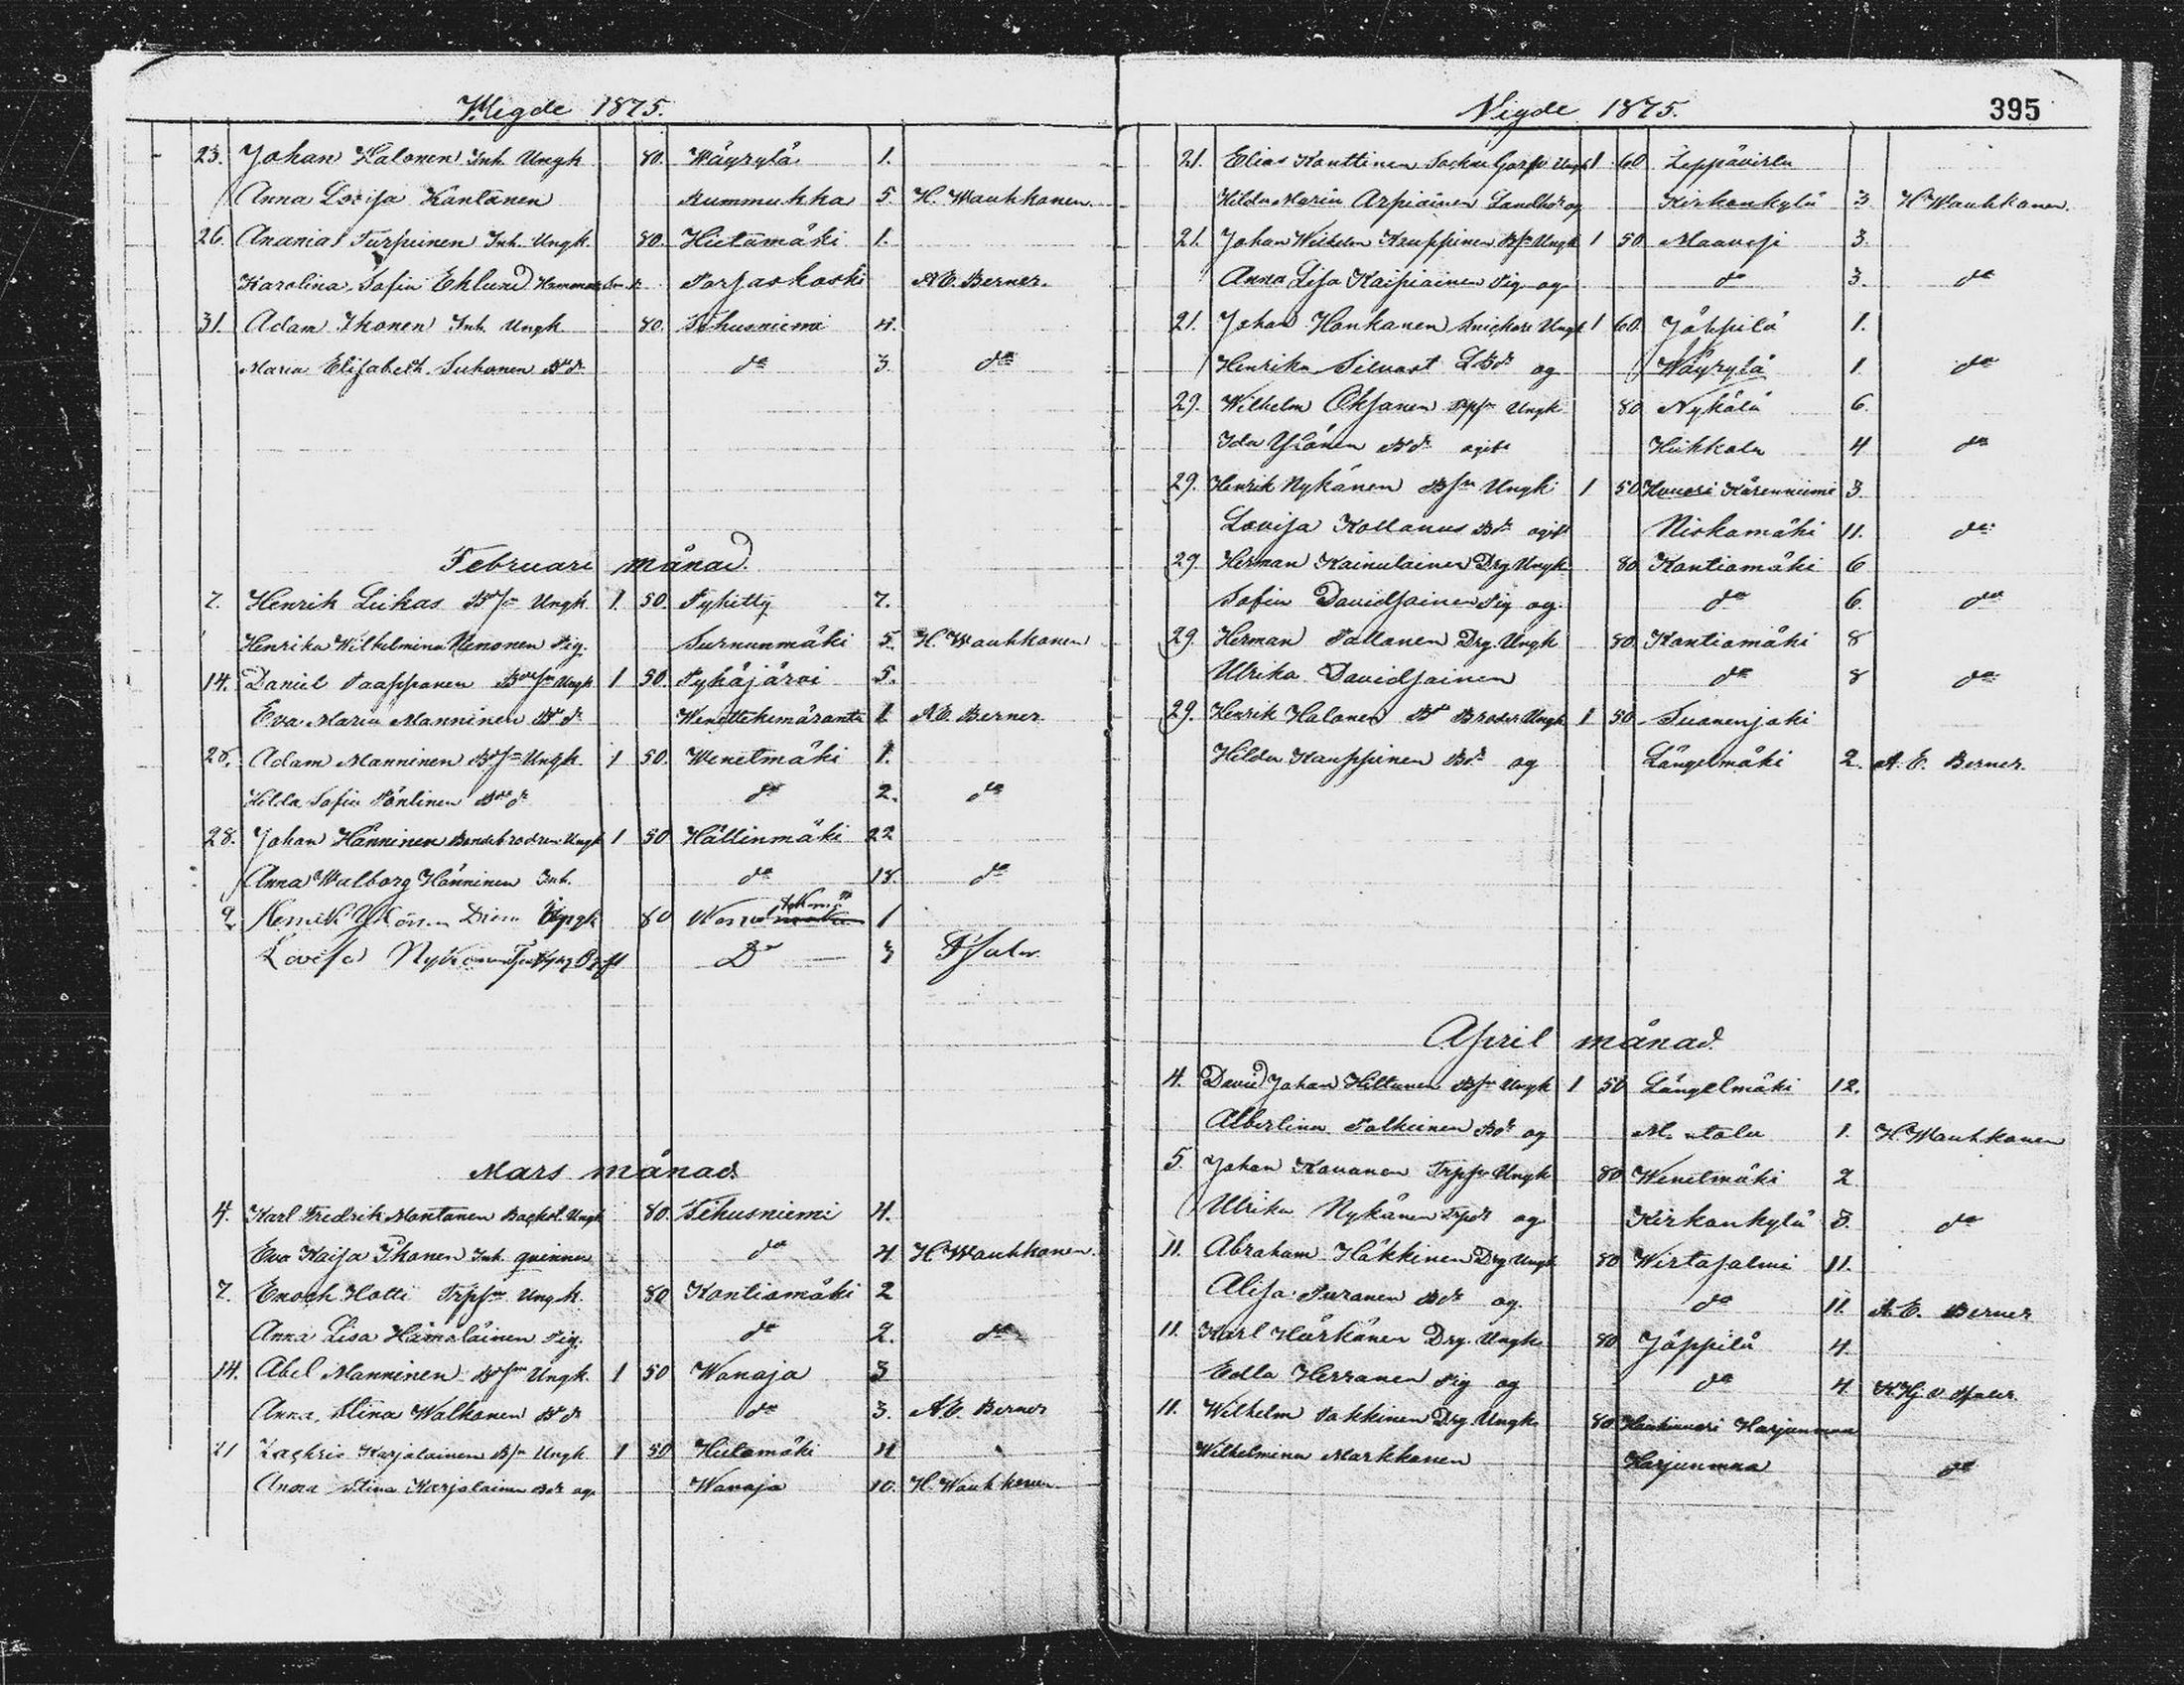 Wigde 1875.
23. Johan Halonen Inh. Ungk 80. Wäyrylä 1.
Anna Lovisa Kantanen Rummukka 5 H. Waukkonen.
26. Ananias Turpeinen Inh. Ungk. 80. Hietämäki 1.
Karolina Sofia Eklund Porsaskoski A E. Berner.
31. Adam Ikonen Inh. Ungk 80. Tihusniemi 4.
Maria Elisabeth Suhonen Bd. do 3. do
Februari månad.
7. Henrik Liikas Bdsn Ungk. 1. 50. Pyhitty 7.
Henrika Wilhelmina Venonen Pig. Surnunmäki 5. H. Waukkonen
14. Daniel Paappanen Ungk 1 50. Pyhäjärvi 5.
Eva Maria Manninen Bd. 1 A. E. Berner
28. Adam Manninen Bdsn Ungk. 1 50. Wenetmäki 1.
Hilda Sofia Pöntinen Bdd. do 2. do
28. Johan Hänninen Bondebrodren Ungk 1 50 Hällinmäki 22
Anna Walborg Hänninen Inh. do 18. do
9. Henrik Ylönen Ungk 80 1
Lovisa Nykänen Do 3
Mars månad.
4. Karl Fredrik Montonen Ungk 80. Tihusniemi 4.
Eva Kaisa Ihonen Inh. qvinna do 4 H Waukkonen.
7. Enoch Hotti Trpsn Ungk. 80 Kontiomäki 2
Anna Lisa Hämäläinen Pig. do 2. do
14. Abel Manninen Bdsn Ungk. 1 50 Wanaja 3
Anna Stina Walkonen Bd. do 3. A. E. Berner
21 Zachris Karjalainen Bsn Ungk 1 50 Hietamäki 11
Anna Stina Karjalainen Bdr og. Wanaja 10. H. Waukkonen
Vigde 1875. 395
21. Elias Konttinen Ungk 1 60 Leppävirta
Hilda Maria Arpiainen og Kirkonkylä 3 H Waukkonen.
21. Johan Wilhelm Kauppinen Bsn Ungk 1 50 Maavesi 3.
Anna Lisa Kaipiainen Pig og do 3. do
21. Johan Honkanen Snickare Ungk 1 60. Jäppilä 1.
Henrika Silvast og Wäyrylä 1 do
29. Wilhelm Oksanen Trpsn Ungk 80 Nykälä 6.
Ida Ylönen Bd. ogift Hiikkola 4 do
29. Henrik Nykänen Bsn Ungk 1 50 Kärenniemi 3.
Lovisa Kollanus Bdr ogift Niskamäki 11. do
29. Herman Kainulainen Drg. Ungk 80 Kontiomäki 6
Sofia Davidsainen Pig og. do 6. do
29. Herman Pollanen Drg. Ungk 80 Kontiomäki 8
Ulrika Davidsainen do 8 do
29. Henrik Halonen Bd Broder Ungk 1 50 Suonenjoki
Hilda Kauppinen Bdr og Längelmäki 2. A. E. Berner.
April månad.
4. David Johan Hiltunen Bsn Ungk 1 50 Längelmäki 12.
Albertina Bdr og 1. H Waukkonen
5. Johan Kovanen Trpsn Ungk 80 Wenetmäki 2
Ulrika Nykänen Trpdr og Kirkonkylä 3. do
11. Abraham Häkkinen Drg Ungk 80 Wirtasalmi 11.
Alisa Puranen Bdr og. do 11. A. E. Berner
11. Karl Härkänen Drg. Ungk 80 Jäppilä 4.
Edla Herranen Pig og do 4.
11. Wilhelm Pakkinen Drg Ungk 80. Haukivuori Harjunmaa
Wilhelmina Markkanen Harjunmaa do